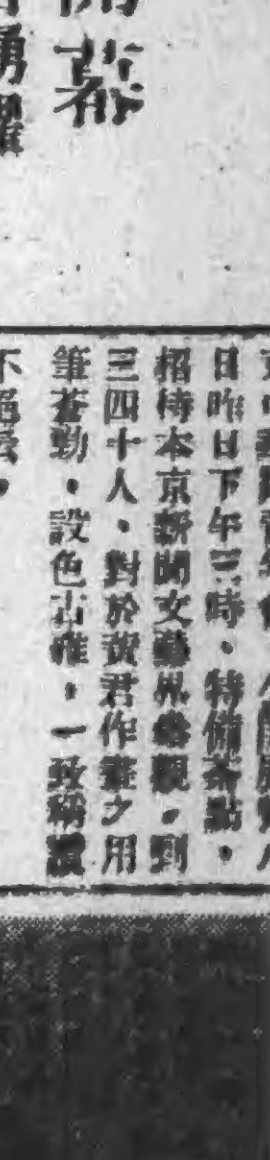 幕
踴躍
日昨日下午三時、特備茶點、
招待本京新聞文藝界參觀、到
三四十人、對於黃君作畫之用
筆蒼勁、設色古雅、一致稱讚
不絕云、